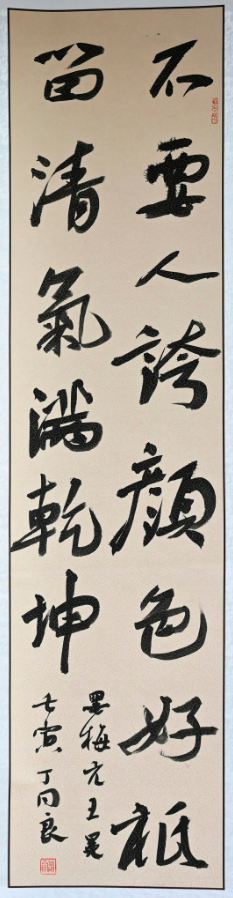 不要人誇顏色好祇
留清氣滿乾坤
墨梅元王冕
壬寅丁同良